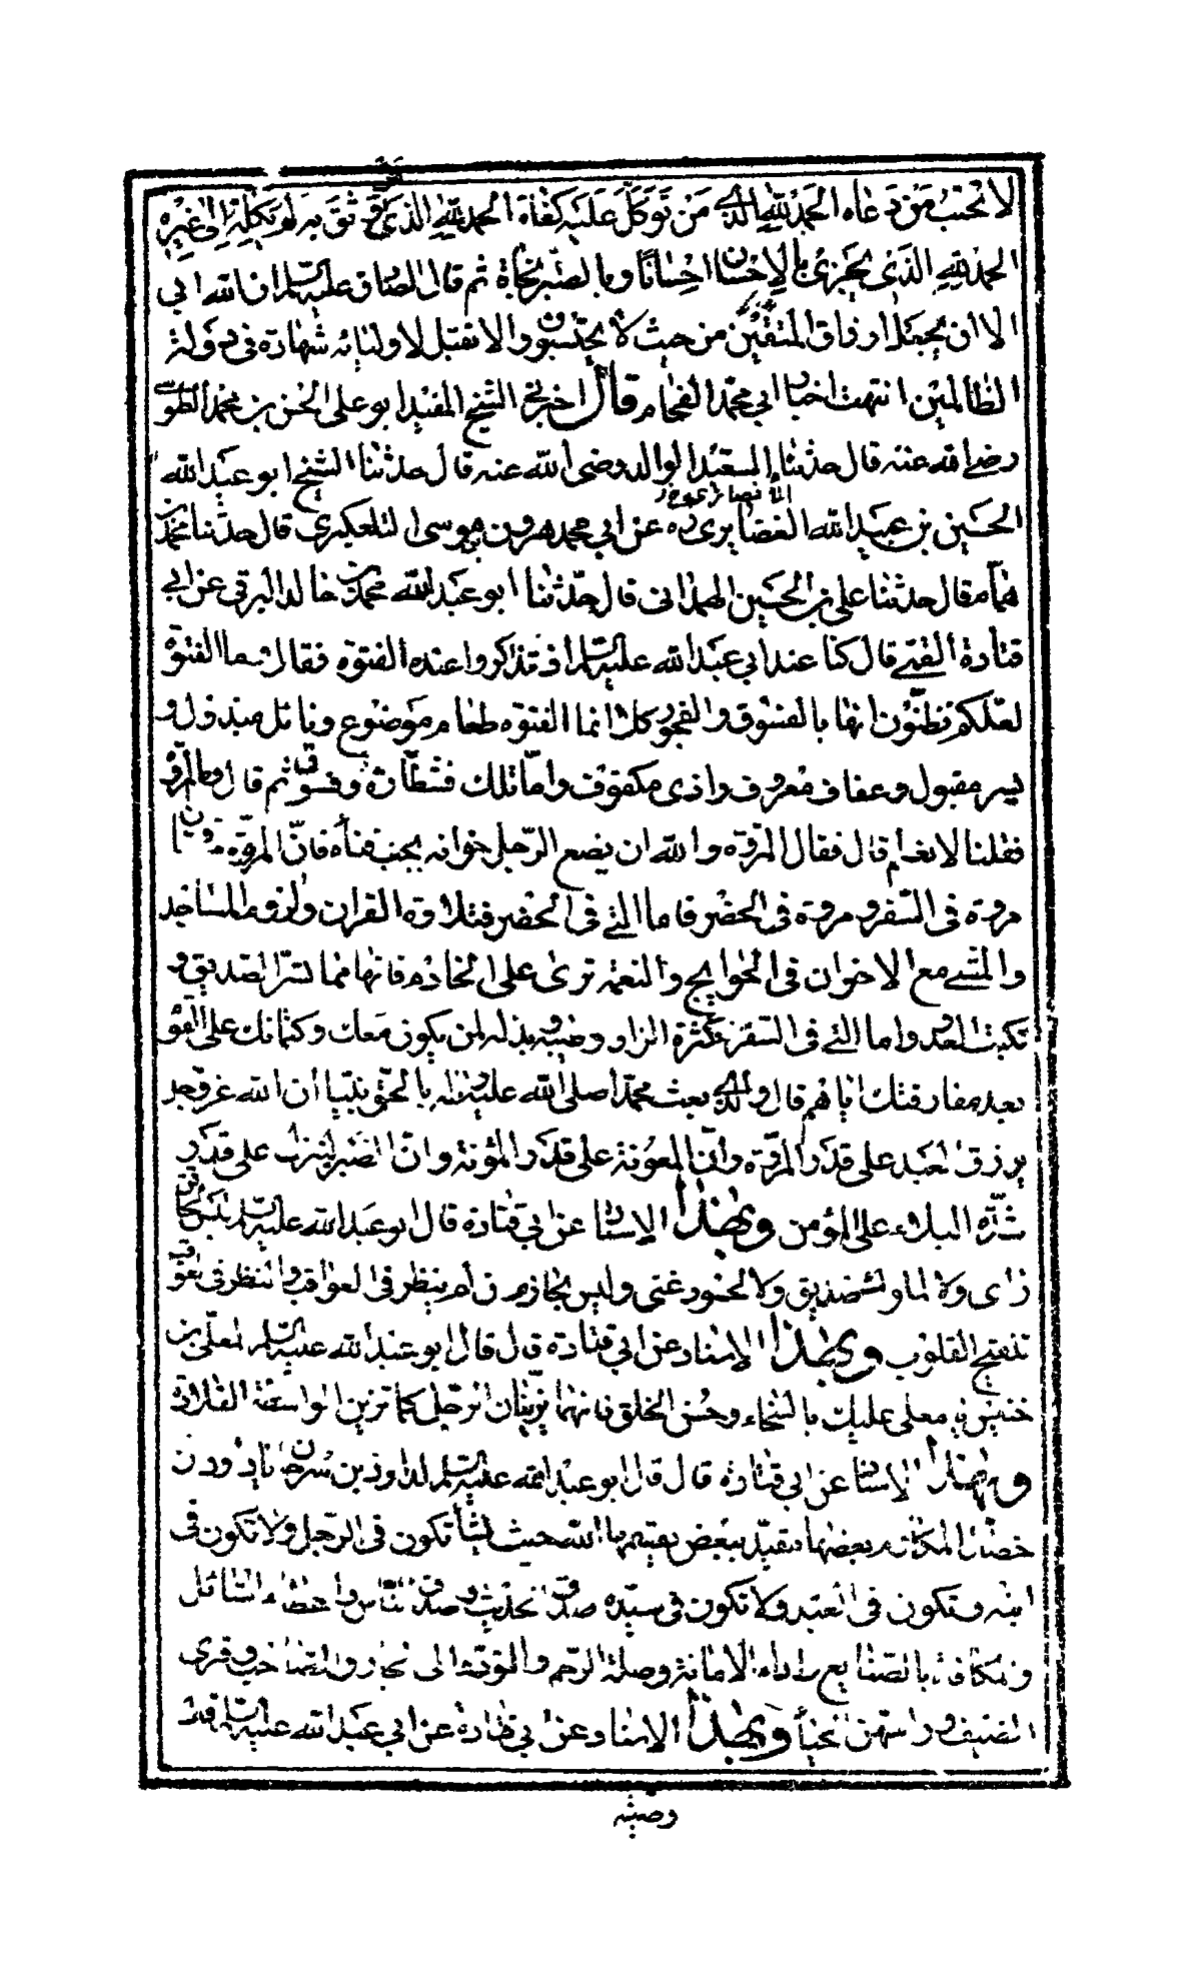 لا يخيب من دعاه الحمد لله الذي من توكل عليه كفاه الحمد لله الذي من وثق به لم يكله إلى غيره
الحمد لله الذي يجزي بالإحسان إحسانا وبالصبر نجاة ثم قال الصادق عليه السلم ان الله ابى
الا ان يجعل ارزاق المتقين من حيث لا يحتسبون والا تقبل لاوليائه شهادة في دولة
الظالمين انتهت اخبار ابي محمد الفحام قال اخبرنا الشيخ المفيد ابو علي الحسن بن محمد الطوسي
رضي الله عنه قال حدثنا السعيد الوالد رضى الله عنه قال حدثنا الشيخ ابو عبد الله
الحسين بن عبيد الله الغضايري ره عن ابي محمد هرون بن موسى التلعكبري قال حدثنا محمد بن
همام قال حدثنا علي بن الحسين الهمداني قال حدثنا ابو عبد الله محمد بن خالد البرقي عن ابي
قتادة القمي قال كنا عند ابي عبد الله عليه السلم اذ تذاكروا عنده الفتوة فقال وما الفتوة
لعلكم تظنون انها بالفسوق والفجور كلا انما الفتوة طعام موضوع ونائل مبذول و
يسر مقبول وعفاف معروف واذى مكفوف واما تلك فشطارة وفسوق ثم قال وما المروة
فقلنا لا نعلم قال فقال المروة والله ان يضع الرجل خوانه بجنب فنائه فان المروة مروتان
مروة في السفر ومروة في الحضر فاما التي في الحضر فتلاوة القران ولزوم المساجد
والمشي مع الاخوان في الحوايج والنعمة ترى على الخادم فانها مما تسر الصديق و
تكبت العدو واما التي في السفر فكثرة الزاد وطيبه وبذله لمن يكون معك وكتمانك على القوم
بعد مفارقتك اياهم قال والذي بعث محمدا صلى الله عليه واله بالحق نبيا ان الله عز وجل
يرزق العبد على قدر المروة وان المعونة على قدر المؤنة وان الصبر لينزل على قدر
شدة البلاء على المؤمن وبهذا الإسناد عن ابي قتادة قال ابو عبد الله عليه السلم ليس لحاقن
راى ولا لملول صديق ولا لحسود غنى وليس بحازم من لم ينظر في العواقب والنظر في العواقب
تلقيح القلوب وبهذا الاسناد عن ابي قتادة قال قال ابو عبد الله عليه السلم لمعلى بن
خنيس يا معلى عليك بالسخاء وحسن الخلق فانهما يزينان الرجل كما تزين الواسطة القلادة
وبهذا الاسناد عن ابي قتادة قال قال ابو عبد الله عليه السلم لداود بن سرحان يا داود ان
خصال المكارم بعضها مقيد ببعض يقسمها الله حيث يشاء تكون في الرجل ولا تكون في
ابنه وتكون في العبد ولا تكون في سيده صدق الحديث وصدق الناس واعطاء السائل
والمكافاة بالصنايع واداء الامانة وصلة الرحم والتودد الى الجار والصاحب وقرى
الضيف وراسهن الحياء وبهذا الاسناد عن ابي قتادة عن ابي عبد الله عليه السلم قال
وصية